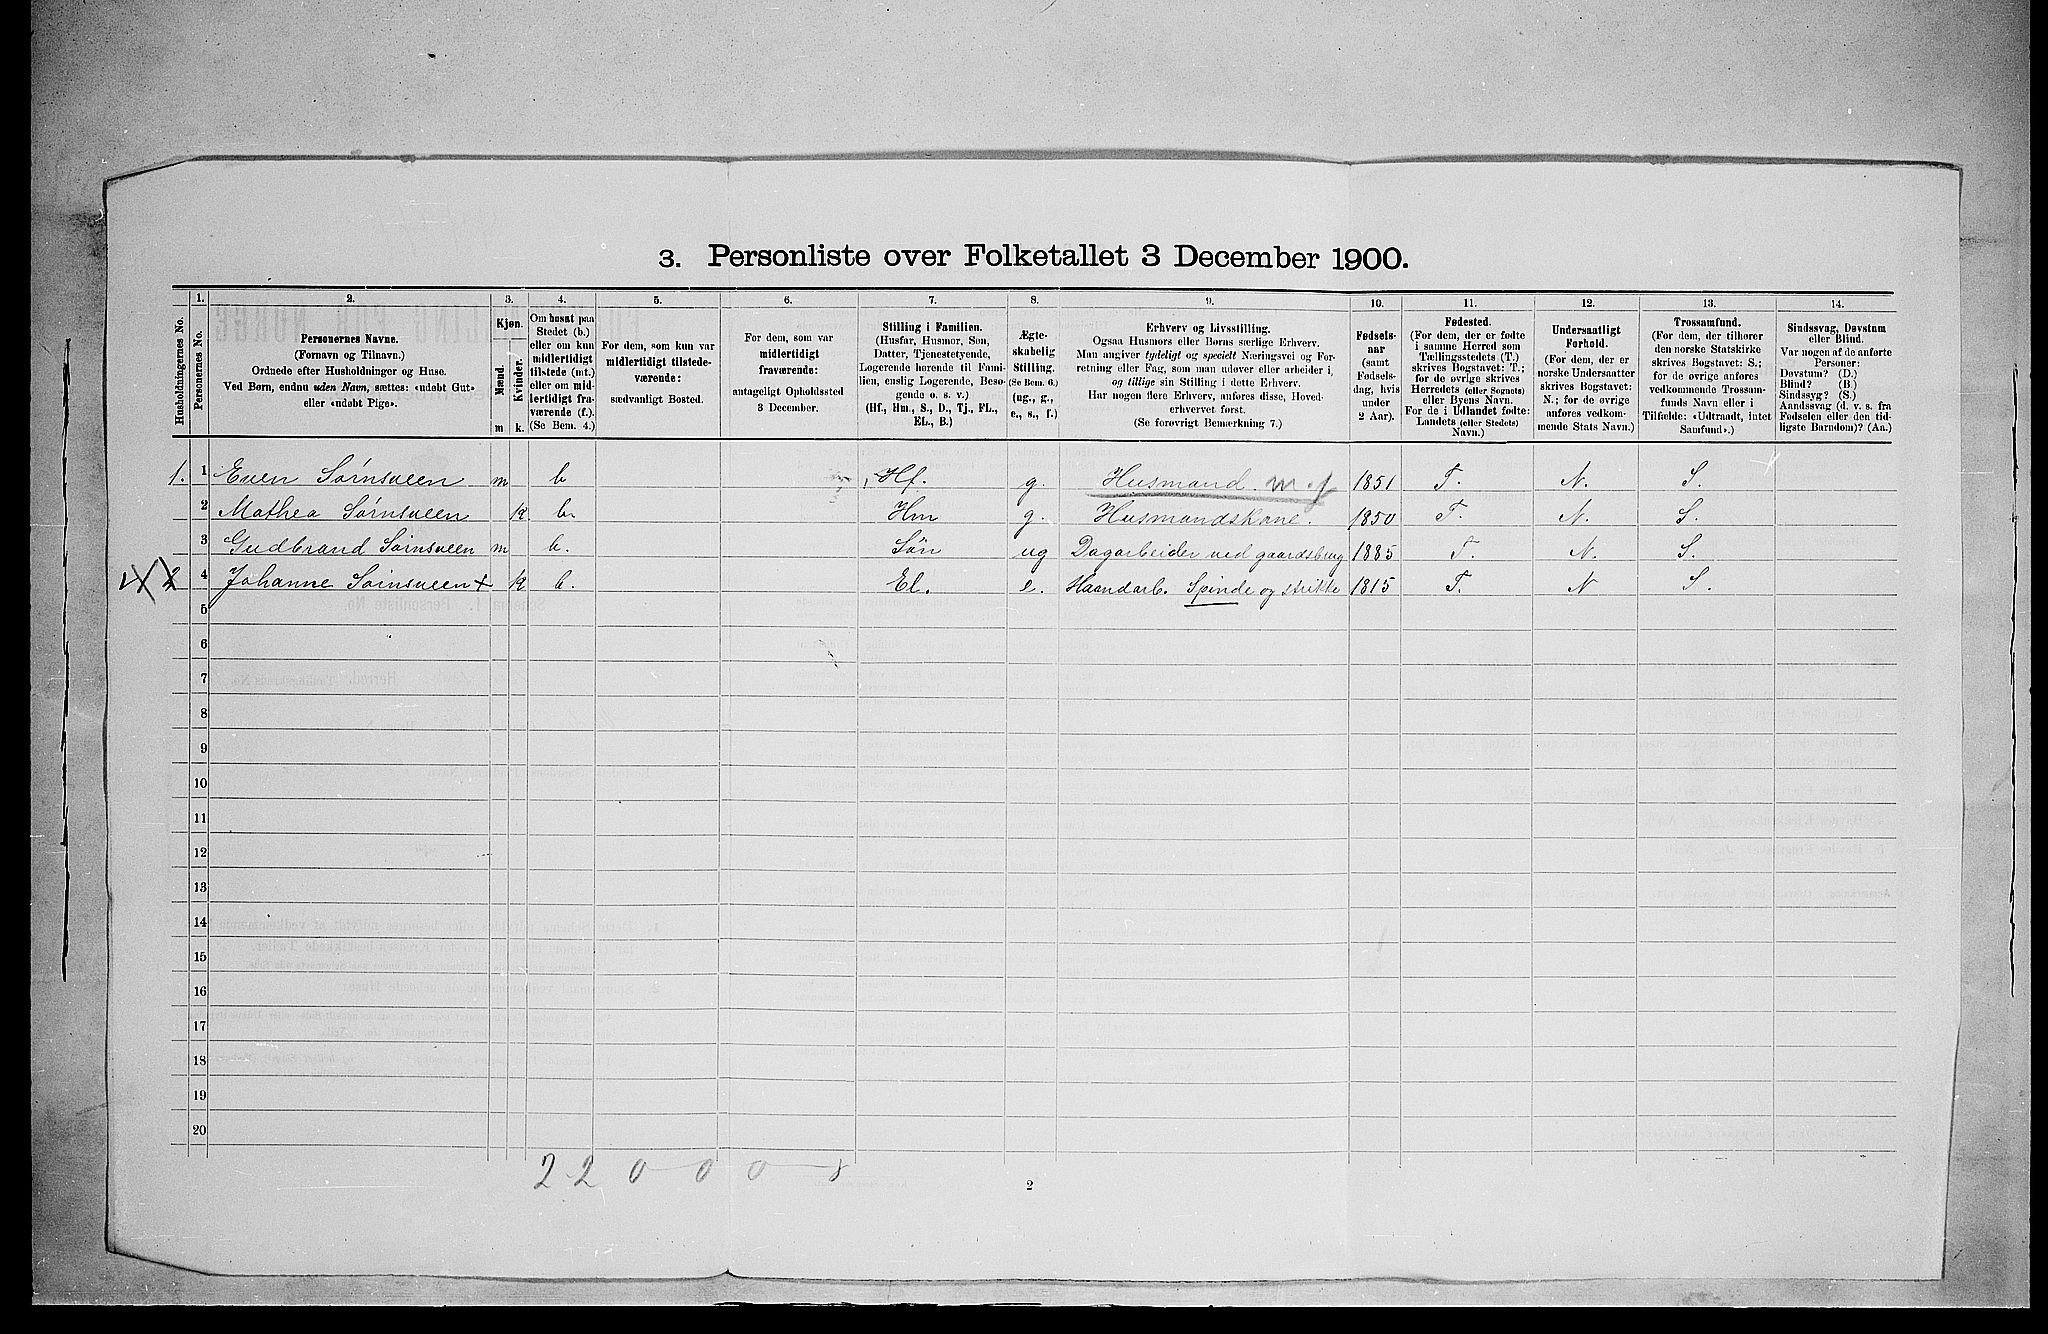 3. Personliste over Folketallet 3 December 1900.
1. 2. 3. 4. 5. 6. 7. 8. 9. 10. 11. 12. 13. 14.
Husholdningernes No.
Personernes No.
Personernes Navne.
(Fornavn og Tilnavn.)
Ordnede efter Husholdninger og Huse.
Ved Børn, endnu uden Navn, sættes: «udøbt Gut»
eller «udøbt Pige».
Kjøn.
Mænd.
Kvinder.
m k.
Om bosat paa
Stedet (b.)
eller om kun
midlertidigt
tilstede (mt.)
eller om mid-
lertidigt fra-
værende (f.).
(Se Bem. 4.)
For dem, som kun var
midlertidigt tilstede-
værende:
sædvanligt Bosted.
For dem, som var
midlertidigt
fraværende:
antageligt Opholdssted
3 December.
Stilling i Familien.
(Husfar, Husmor, Søn,
Datter, Tjenestetyende,
Løgerende hørende til Fami-
lien, enslig Løgerende, Besø-
gende o. s. v.)
(Hf., Hm., S., D., Tj., FL.,
EL., B.)
Ægte-
skabelig
Stilling.
(Se Bem. 6.)
(ug., g.,
e., s., f.)
Erhverv og Livsstilling.
Ogsaa Husmors eller Børns særlige Erhverv.
Man angiver tydeligt og specielt Næringsvei og For-
retning eller Fag, som man udøver eller arbeider i,
og tillige sin Stilling i dette Erhverv.
Har nogen flere Erhverv, anføres disse, Hoved-
erhvervet først.
(Se forøvrigt Bemærkning 7.)
Fødsels-
aar
(samt
Fødsels-
dag, hvis
under
2 Aar).
Fødested.
(For dem, der er fødte
i samme Herred som
Tællingsstedets (T.)
skrives Bogstavet: T.;
for de øvrige skrives
Herredets (eller Sognets)
eller Byens Navn.
For de i Udlandet fødte:
Landets (eller Stedets)
Navn.)
Undersaatligt
Forhold.
(For dem, der er
norske Undersaatter
skrives Bogstavet:
N.; for de øvrige
anføres vedkom-
mende Stats Navn.)
Trossamfund.
(For dem, der tilhører
den norske Statskirke
skrives Bogstavet: S.;
for de øvrige anføres
vedkommende Trossam-
funds Navn eller i
Tilfælde: «Udtraadt, intet
Samfund».)
Sindssvag, Døvstum
eller Blind.
Var nogen af de anførte
Personer:
Døvstum? (D.)
Blind? (B.)
Sindssyg? (S.)
Aandssvag (d. v. s. fra
Fødselen eller den tid-
ligste Barndom)? (Aa.)
1. 1 Even Sørnsveen m b Hf. g. Husmand. m. j 1851 T. N. S.
2 Mathea Sørnsveen k b. Hm g. Husmandskone. 1850 T. N. S.
3 Gudbrand Sørnsveen m b. Søn ug Dagarbeider ved gaardsbrug 1885 T. N. S.
2 4 Johanne Sørnsveen + k b. El. e. Haandarb. Spinde og strikke 1815 T. N S.
5
6
7
8
9
10
11
12
13
14
15
16
17
18
19
20
2 2 0 0 0
2